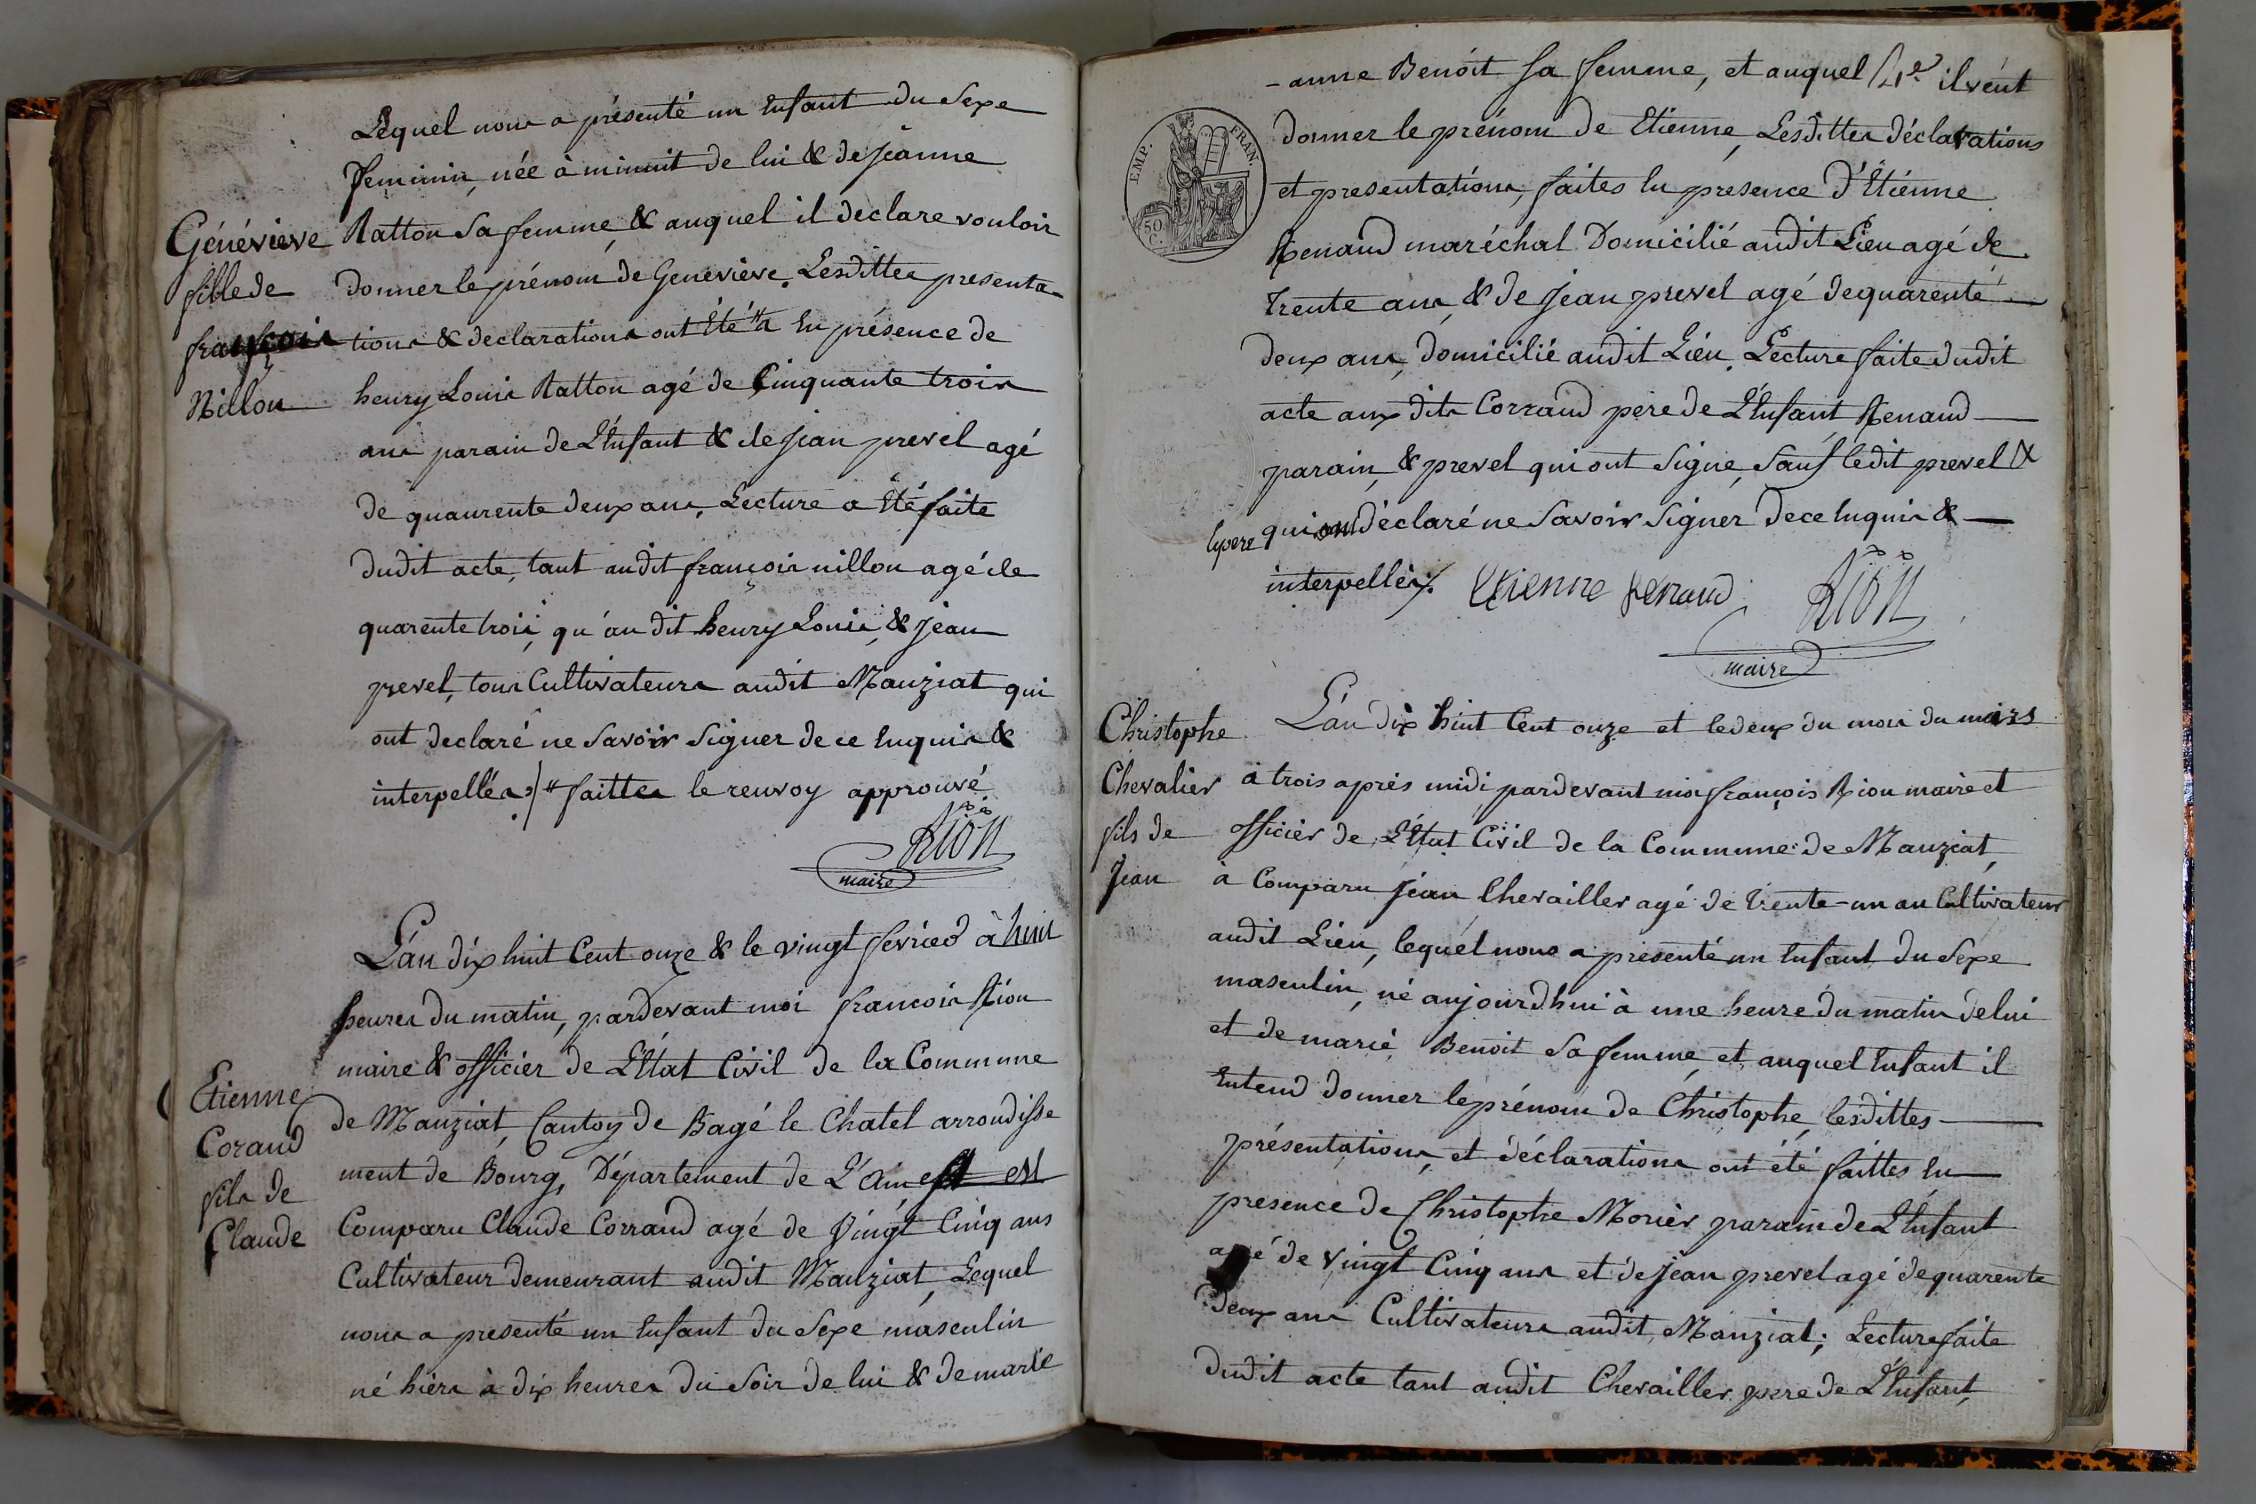 Lequel nous a présenté un Enfant du Sexe
feminin, née à minuit de lui & de jeanne
Ratton Sa femme, & auquel il declare vouloir
donner le prénom de Geneviève. Lesdittes presenta-
tions & declarations ont Été "a En présence de
henry Louis Ratton agé de Cinquante trois
ans parain de L'Enfant & de jean prevel agé
de quaurente deux ans, Lecture a Été faite
dudit acte, tant audit françois nillon agé de
quarente trois, qu'au dit henry Louis & jean
prevel, tous Cultivateurs audit Manziat qui
ont declaré ne Savoir Signer de ce Enquis &
interpellés ./. "faittes le renvoy approuvé
Rion
maire
Généviève
fille de
françois
Nillon
L'an dix huit Cent onze & le vingt fevrier à huit
heures du matin, pardevant moi francois Rion
maire & officier de L'Etat Civil de la Commune
de Manziat, Canton de Bagé le Chatel arrondisse
ment de Bourg, Département de L'Ain est
Comparu Claude Corrand agé de Vingt Cinq ans
Cultivateur demeurant audit Manziat, Lequel
nous a presenté un Enfant du Sexe masculin
né hiers à dix heures du Soir de lui & de marie
Etienne
Corand
fils de
Claude
-anne Benoit Sa femme, et auquel il veut
donner le prénom de Etienne, Lesdittes déclarations
et presentations, faites En presence d'Etienne
Renaud maréchal Domicilié audit Lieu agé de
trente ans, & de Jean prevel agé de quarente
deux ans, domicilié audit Lieu. Lecture faite dudit
acte aux dits Corrand père de L'Enfant Renaud
parain, & prevel qui ont Signé, Sauf ledit prevel &
le pere qui ont déclaré ne Savoir Signer de ce Enquis &
interpellés ./. Etienne Renaud Rion
maire
EMP. FRAN.
50 C.
L'an dix huit Cent onze et le deux du mois du mars
à trois après midi pardevant moi françois Rion maire et
officier de L'Etat Civil de la Commune de Manziat,
à Comparu Jean Chevailler agé de trente-un an Cultivateur
audit Lieu, lequel nous a présenté un Enfant du Sexe
masculin, né aujourdhui à une heure du matin de lui
et de marie Benoit Sa femme, et auquel Enfant il
Entend donner le prénom de Christophe, lesdittes
présentations, et déclarations ont été faittes En
presence de Christophe Morier parain de L'Enfant
agé de Vingt Cinq ans et de jean prevel agé de quarente
deux ans Cultivateurs audit Manziat; Lecture faite
dudit acte tant audit Chevailler pere de L'Enfant,
Christophe
Chevalier
fils de
Jean